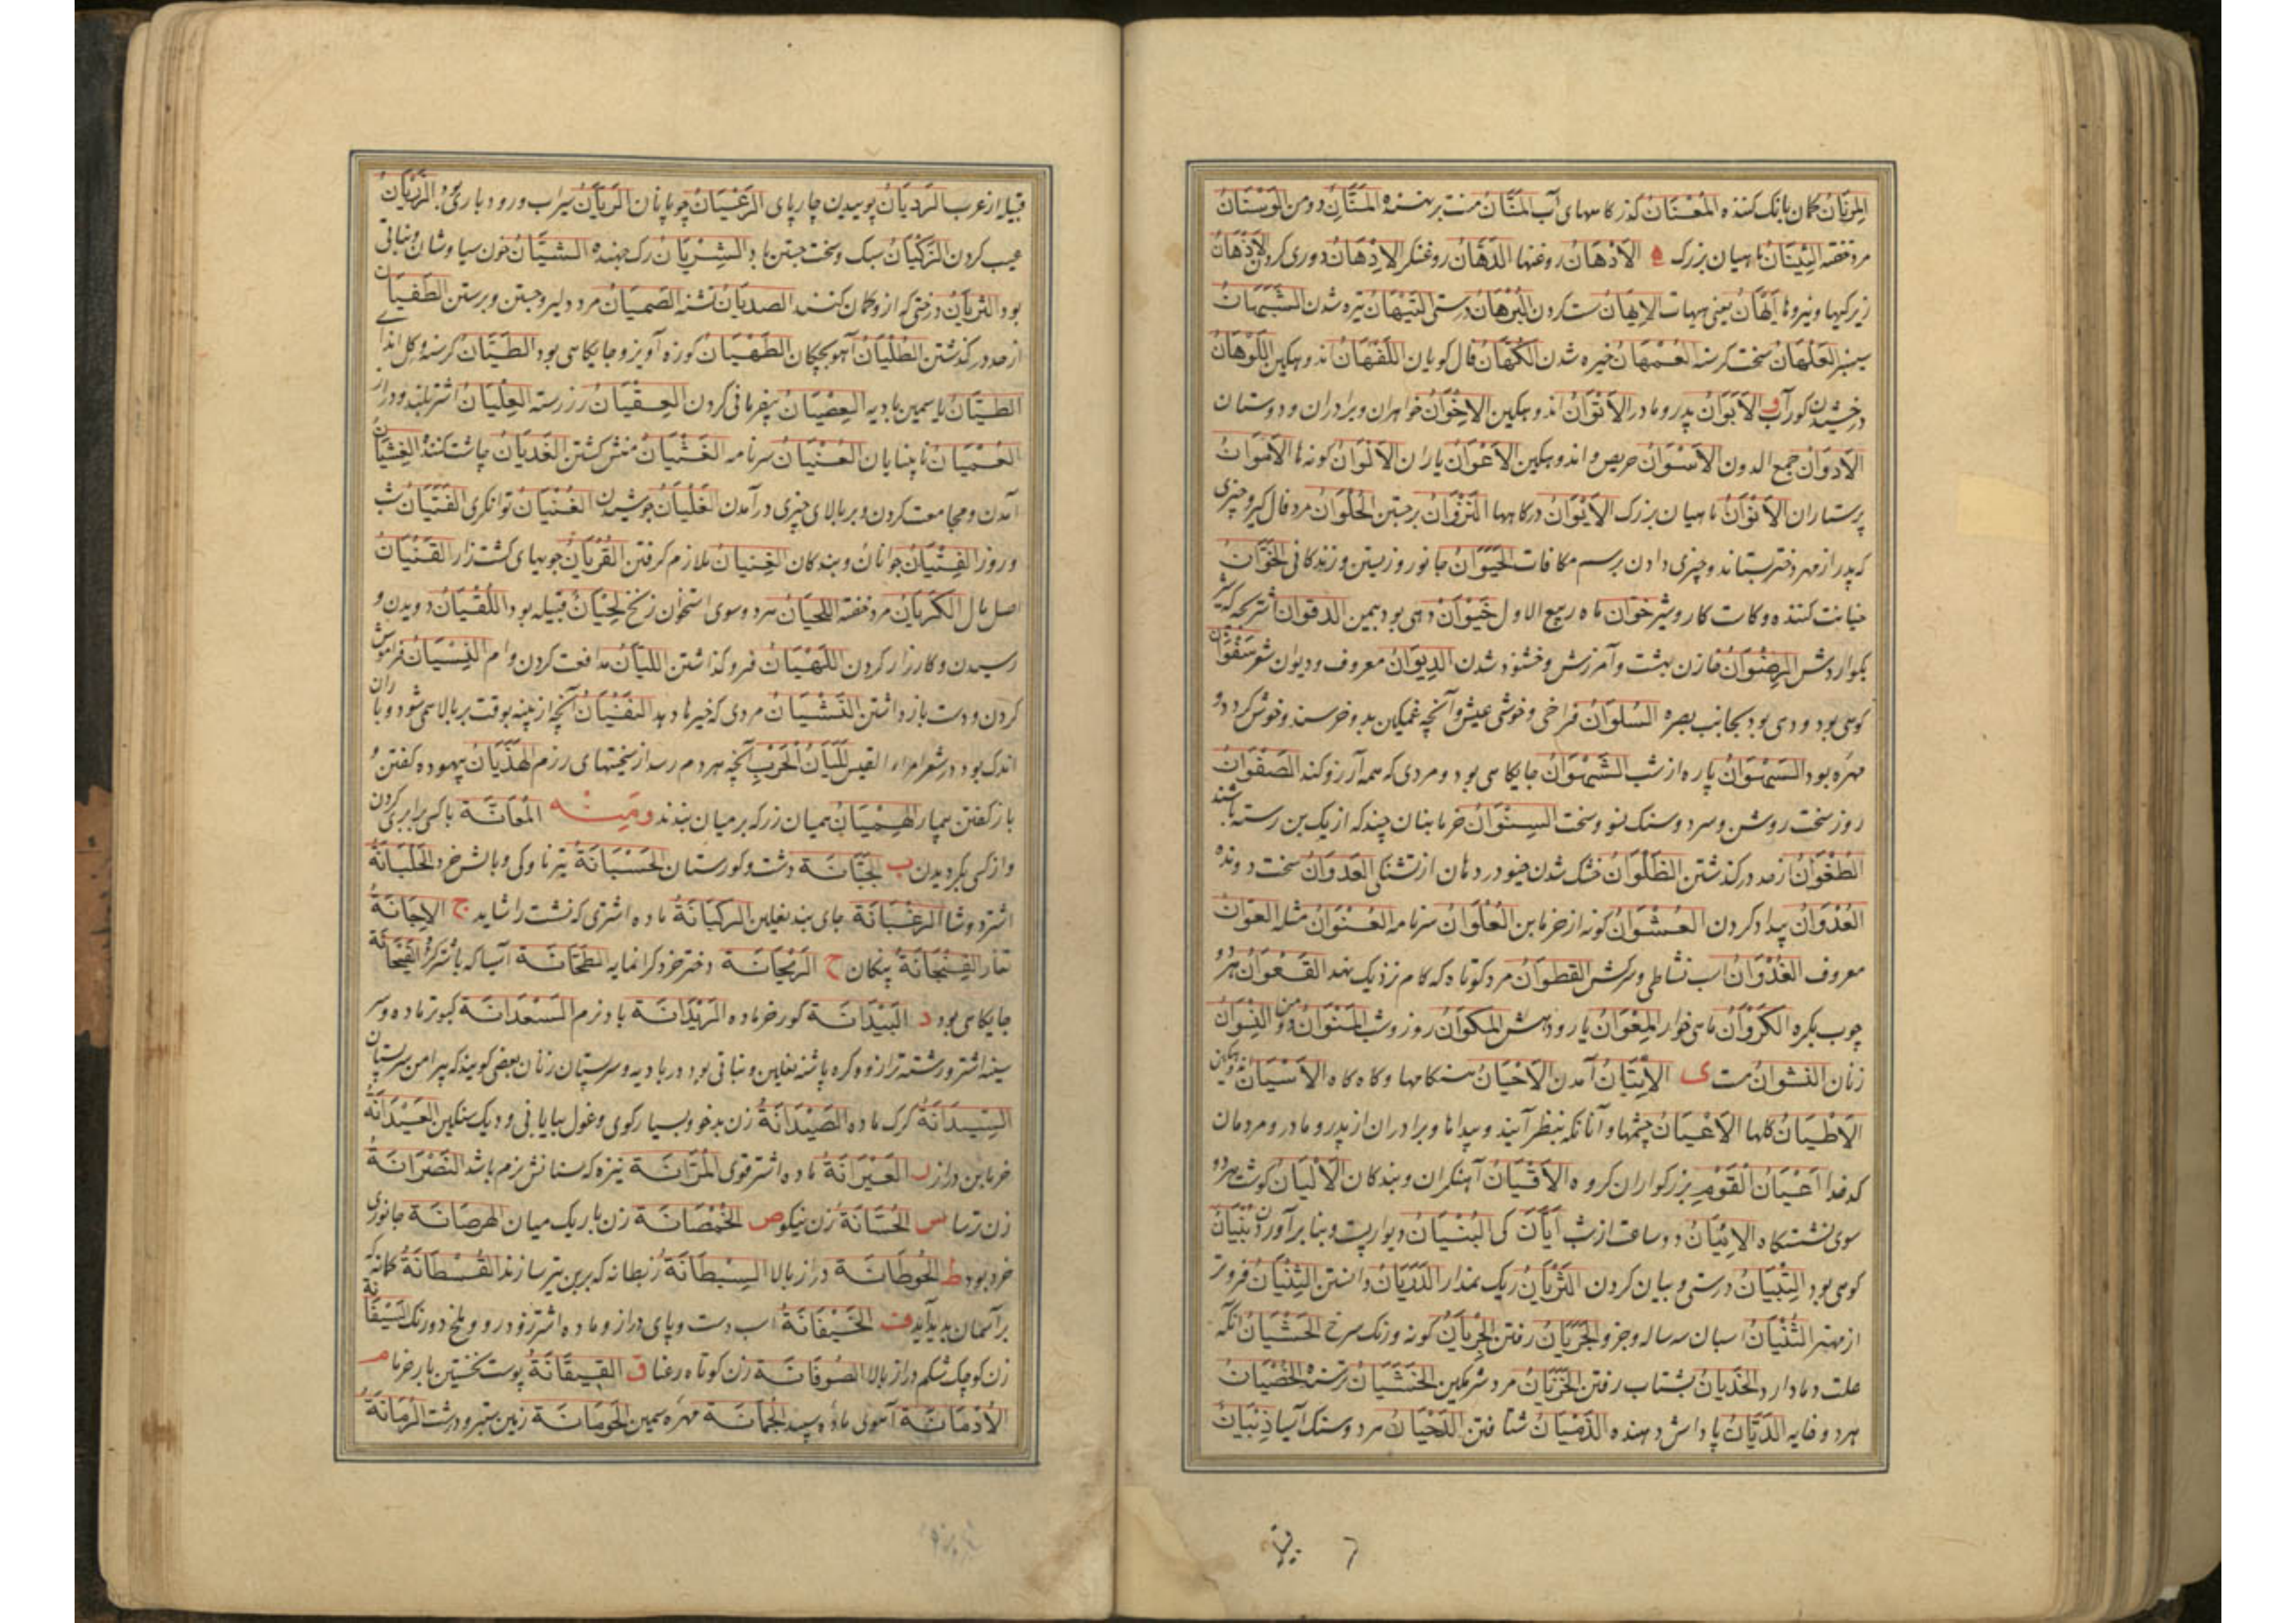 المِرنَانُ کمان بانک کننده المَعْنَانُ کذرکاههای آب المَنَّانُ منت برنهنده المَنَّانِ دو من الوَسْنَانُ
مرد خفته النِّینَانُ ماهیان بزرک ه الاَدْهَانُ روغنها الدَهَّانُ روغنکر الاِدْهَانُ دوری کردن الاَذْهَانُ
زیرکیها و نیروها اَیْهَانُ یعنی هیهات الاِیهَانُ سست کردن البُرْهَانُ درستی التَیَهَانُ تیره شدن الشَبَهَانُ
سیسنبر العَلْهَانُ سخت کرسنه العَمَهَانُ خیره شدن الکُهَّانُ فال کویان اللَهْفَانُ اندوهکین اللَوَهَانُ
درخشیدن کورآب و الاَبَوَانِ پدر و مادر الاَسْوَانُ اندوهکین الاِخْوَانُ خواهران و برادران و دوستان
الاَدْوَانُ جمع الدون الاَسْوَانُ حریص و اندوهکین الاَعْوَانُ یاران الاَلْوَانُ کونه‌ها الاَمْوَانُ
پرستاران الاَنْوَانُ ماهیان بزرک الاَیْوَانُ درکاهها النَزَوَانُ برجستن الحُلْوَانُ مرد فال کیر و چیزی
که پدر از مهر دختر بستاند و چیزی دادن برسم مکافات الحَیَوَانُ جانور و زیستن و زندکانی الخَوَّانُ
خیانت کننده و کاست کار و شیر خَوَّان ماه ربیع الاول خَیْوَانُ دهی بود بیمن
بکوارد شر الرِضْوَانُ خازن بهشت و آمرزش و خشنود شدن الدِیوَانُ معروف و دیوان شعر سَفَوَانُ
کوهی بود و دهی بود بجانب بصره السُلوَانُ فراخی و خوشی عیش و آنچه غمکین بدو خرسند و خوش کردد و
مهره بود السَهْوَانُ پاره از شب الشَهْوَانُ جایکاهی بود و مردی که همه آرزو کند الصَفْوَانُ
روز سخت روشن و سرد و سنک نسو و سخت السِنْوَانُ خرمابنان چند که از یک بن رسته باشند
الطُغْوَانُ از حد در کذشتن الظَلَوَانُ خشک شدن خیو در دهان از تشنکی العَدَوَانُ سخت دونده
العُدْوَانُ بیداد کردن العُشْوَانُ کونه از خرمابن العُلْوَانُ سرنامه العُنْوَانُ مثله العَوَانُ
معروف الغَذَوَانُ اسب نشاطی و سرکش القَطَوَانُ مرد کوتاه که کام نزدیک نهد القَعْوَانِ هر دو
چوب بکره الکَرَوَانُ ماهی خوار المِعْوَانُ یار و دهش المَلَوَانُ روز و شب المَنَوَانِ دو من النِسْوَانُ
زنان النَشْوَانُ مست ی الاِتیَانُ آمدن الاَحْیَانُ هنکامها و کاه کاه الاَسْیَانُ اندوهکین
الاَطْیَانُ کلها الاَعْیَانُ چشمها و آنانکه بنظر آیند و پیداها و برادران از پدر و مادر و مردمان
کدخدا اَعْیَانُ القَوْمِ بزرکواران کروه الاَقْیَانُ آهنکران و بندکان الاَلْیَانُ کوشت هر دو
سوی نشستنکاه الاِنْیَانُ دو ساعت از شب اَیَّانَ کی البُنْیَانُ دیوار پست و بنا برآوردن بُنْیَانُ
کوهی بود التِبْیَانُ درستی و بیان کردن الثَرْیَانُ ریک نمدار الدَرَیَانُ دانستن الثِنْیَانُ فروتر
از مهتر الثُنْیَانُ اسبان سه ساله و جز و الجَرَیَانُ رفتن الجِرْیَانُ کونه و رنک سرخ الحَشْیَانُ آنکه
علت دما دارد الخَذَیَانُ بشتاب رفتن الخَزْیَانُ مرد شرمکین الخَشْیَانُ ترسنده الخُصْیَانُ
هر دو خایه الدَیَّانُ پاداش دهنده الذَمَیَانُ شتافتن الرَحَیَانِ هر دو سنک آسیا ذِبْیَانُ
قبیله از عرب الرَدَیَانُ پوییدن چارپای الرُعْیَانُ چوپانان الرَیَّانُ سیراب و رود باری بود الزَرَیَانُ
عیب کردن الزَکَیَانُ سبک و سخت جستن باد الشِرْیَانُ رک جهنده الشَیَّانُ خون سیاوشان و نباتی
بود الشَرْیَانُ درختی که ازو کمان کنند الصَدْیَانُ تشنه الصَمَیَانُ مرد دلیر و جستن و برستن الطُغْیَانُ
از حد در کذشتن الطُلْیَانُ آهو بچکان الطَهَیَانُ کوزه آویز و جایکاهی بود الطَیَّانُ کرسنه و کل انداز
الظَیَّانُ یاسمین بادیه العِصْیَانُ بیفرمانی کردن العِقْیَانُ زر رسته العِلْیَانُ اشتر بلند و دراز
العُمْیَانُ نابینایان العُنْیَانُ سرنامه الغَثَیَانُ منش کشتن الغَدْیَانُ چاشت کننده الغِشْیَانُ
آمدن و مجامعت کردن و بر بالای چیزی درآمدن الغَلَیَانُ جوشیدن الغُنْیَانُ توانکری الفَتَیَانِ شب
و روز الفِتْیَانُ جوانان و بندکان الغِنیَانُ ملازم کرفتن القُرْیَانُ جویهای کشت زار القِنْیَانُ
اصل مال الکَرْیَانُ مرد خفته اللَحْیَانِ هر دو سوی استخوان زنخ لِحْیَانُ قبیله بود اللُقْیَانُ دویدن و
رسیدن و کارزار کردن اللَهْیَانُ فرو کذاشتن اللَیَّانُ مدافعت کردن وام النِسْیَانُ فراموش
کردن و دست باز داشتن النَشْیَانُ مردی که خبرها دهد النَفَیَانُ آنچه از پنبه بوقت بر بالا همی شود و باران
اندک بود و در شعر امراء القیس لَلَیَانُ الحَرْبِ آنچه بمردم رسد از سختیهای رزم الهَذَیَانُ بیهوده کفتن و
باز کفتن بیمار الهِمْیَانُ همیان زر که بر میان بندند ومنـه المَعَانَّة با کسی برابری کردن
و از کسی بکردیدن ب الجَبَّانَة دشت و کورستان الحُسْبَانَةُ تیر ناوکی و بالش خرد الحَلْبَانَةُ
اشتر دوشا الرُغْبَانَة جای بند نعلین الرَکْبَانَةُ ماده اشتری که نشست را شاید ج الاِجَّانَةُ
تغار الفِنْجَانَةُ پنکان ح الرَیْحَانَة دختر خرد کرانمایه الطَحَّانَة آسیا که باشتر کردد
جایکاهی بود د البَیْدَانَة کور خر ماده الرَیْدَانَة باد نرم السَعْدَانَة کبوتر ماده و سر
سینه اشتر و رشته ترازو و کره باشنه نعلین و نباتی بود در بادیه و سر پستان زنان بعضی کویند که پیرامن سر پستان
السِیدَانَة کرک ماده الصَیْدَانَةُ زن بدخو و بسیار کوی و غول بیابانی و دیک سنکین العَیْدَانَةُ
خرمابن دراز ر العَیْرَانَةُ ماده اشتر قوی المُرَّانَة نیزه که سنانش نرم باشد النَصْرَانَةُ
زن ترسا س الحُسَّانَةُ زن نیکو ص الخُمْصَانَة زن باریک میان الهرصَانَة جانوری
خرد بود ط الحُوطَانَة دراز بالا السِبْطَانَةُ زبطانه که بدین تیر سازند القُسْطَانَةُ کمانه که
بر آسمان بدید آید ف الخَیْفَانَةُ اسب دست و پای دراز و ماده اشتر زود رو و ملخ دو رنک السَیْفَانَة
زن کوچک شکم دراز بالا الصُوفَانَة زن کوتاه رعنا ق القِیقَانَةُ پوست نخستین بار خرما م
الاُدْمَانَة آهوی ماده سپید الجُمَانَة مهره سیمین الحَومَانَة زمین ستبر و درشت الرُمَّانَةُ